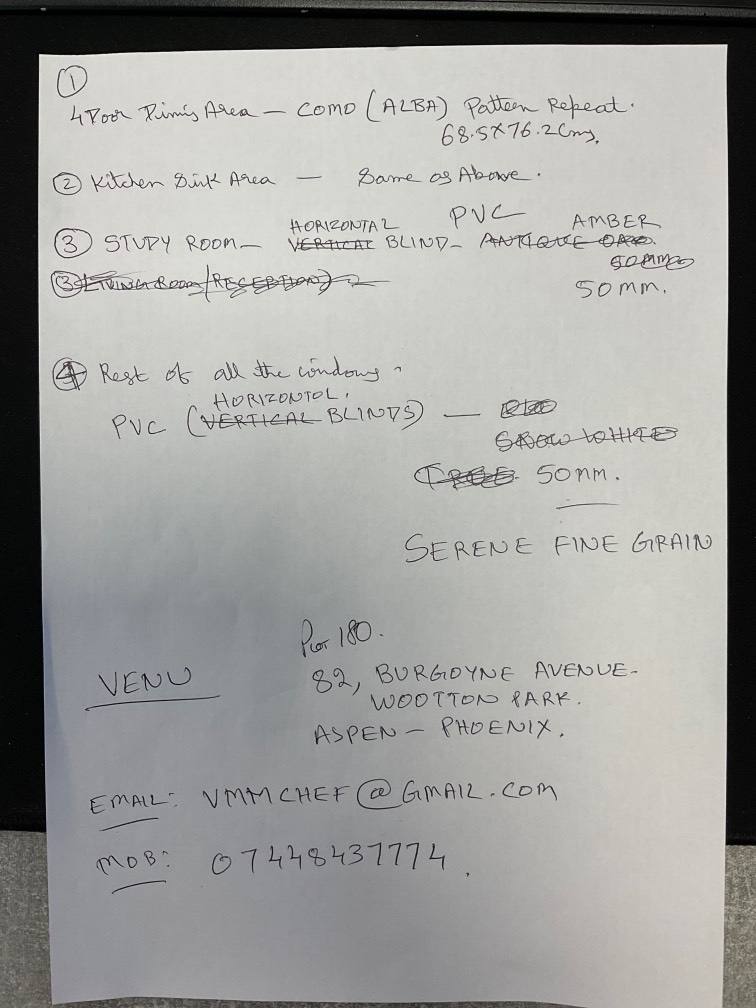 ①
4 Door Dining Area — COMO (ALBA) Pattern Repeat.
68.5X76.2Cms,
② Kitchen Sink Area — Same as Above.
HORIZONTAL PVC AMBER
③ STUDY ROOM — VERTICAL BLIND — ANTIQUE
50mm
③ LIVING ROOM/RECEPTION
50mm.
④ Rest of all the windows
HORIZONTOL.
PVC (VERTICAL BLINDS) —
SNOW WHITE
50mm.
SERENE FINE GRAIN
PLOT 180.
VENU
82, BURGOYNE AVENUE-
WOOTTON PARK.
ASPEN — PHOENIX.
EMAIL: VMMCHEF@GMAIL.COM
MOB: 07448437774.